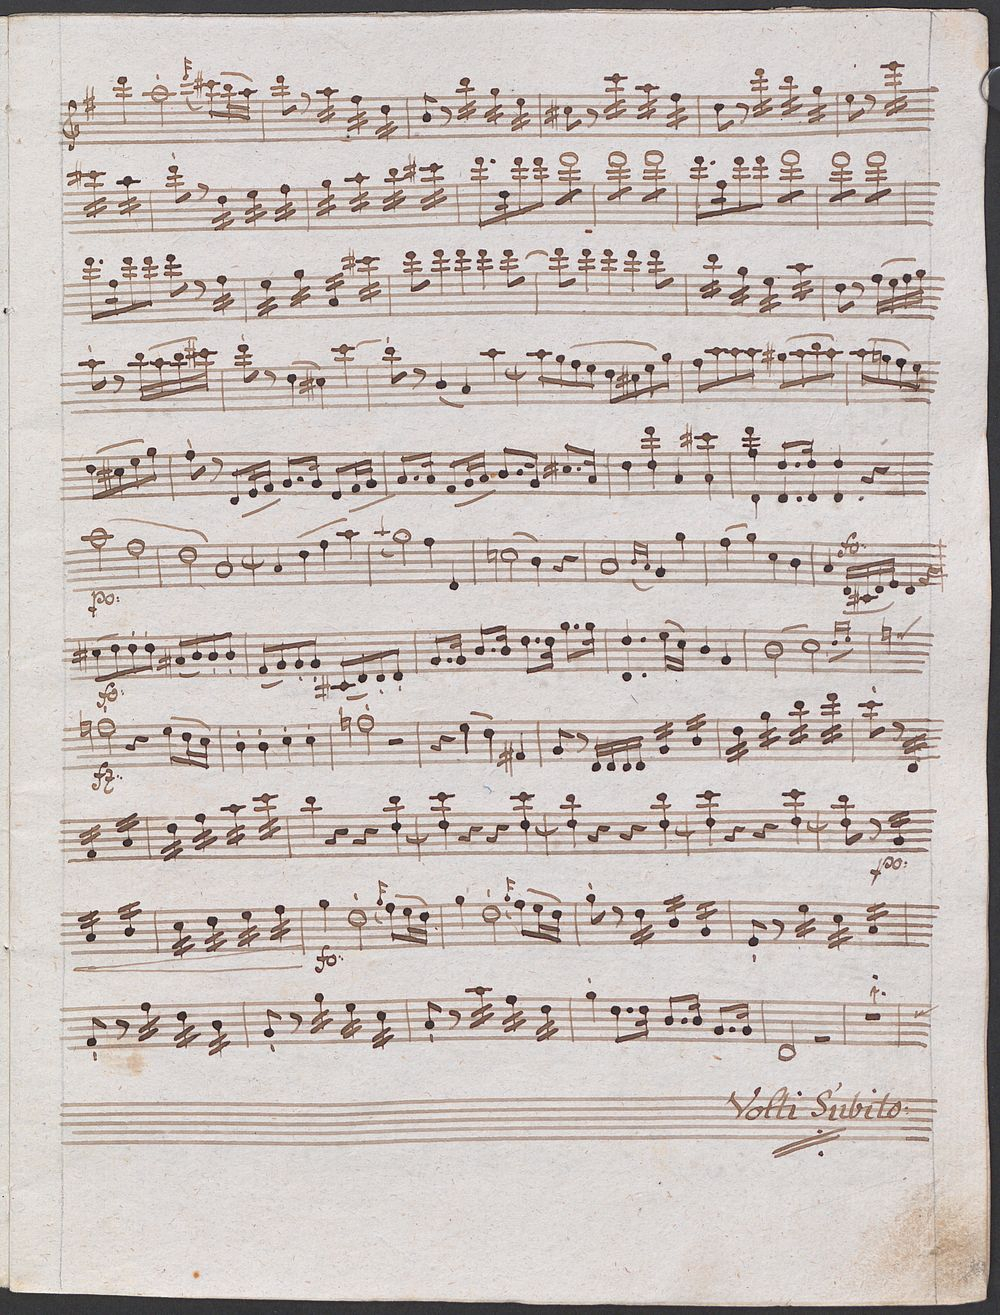 po:
fo:
fo:
fz:
po:
fo:
1.
Volti Subito: